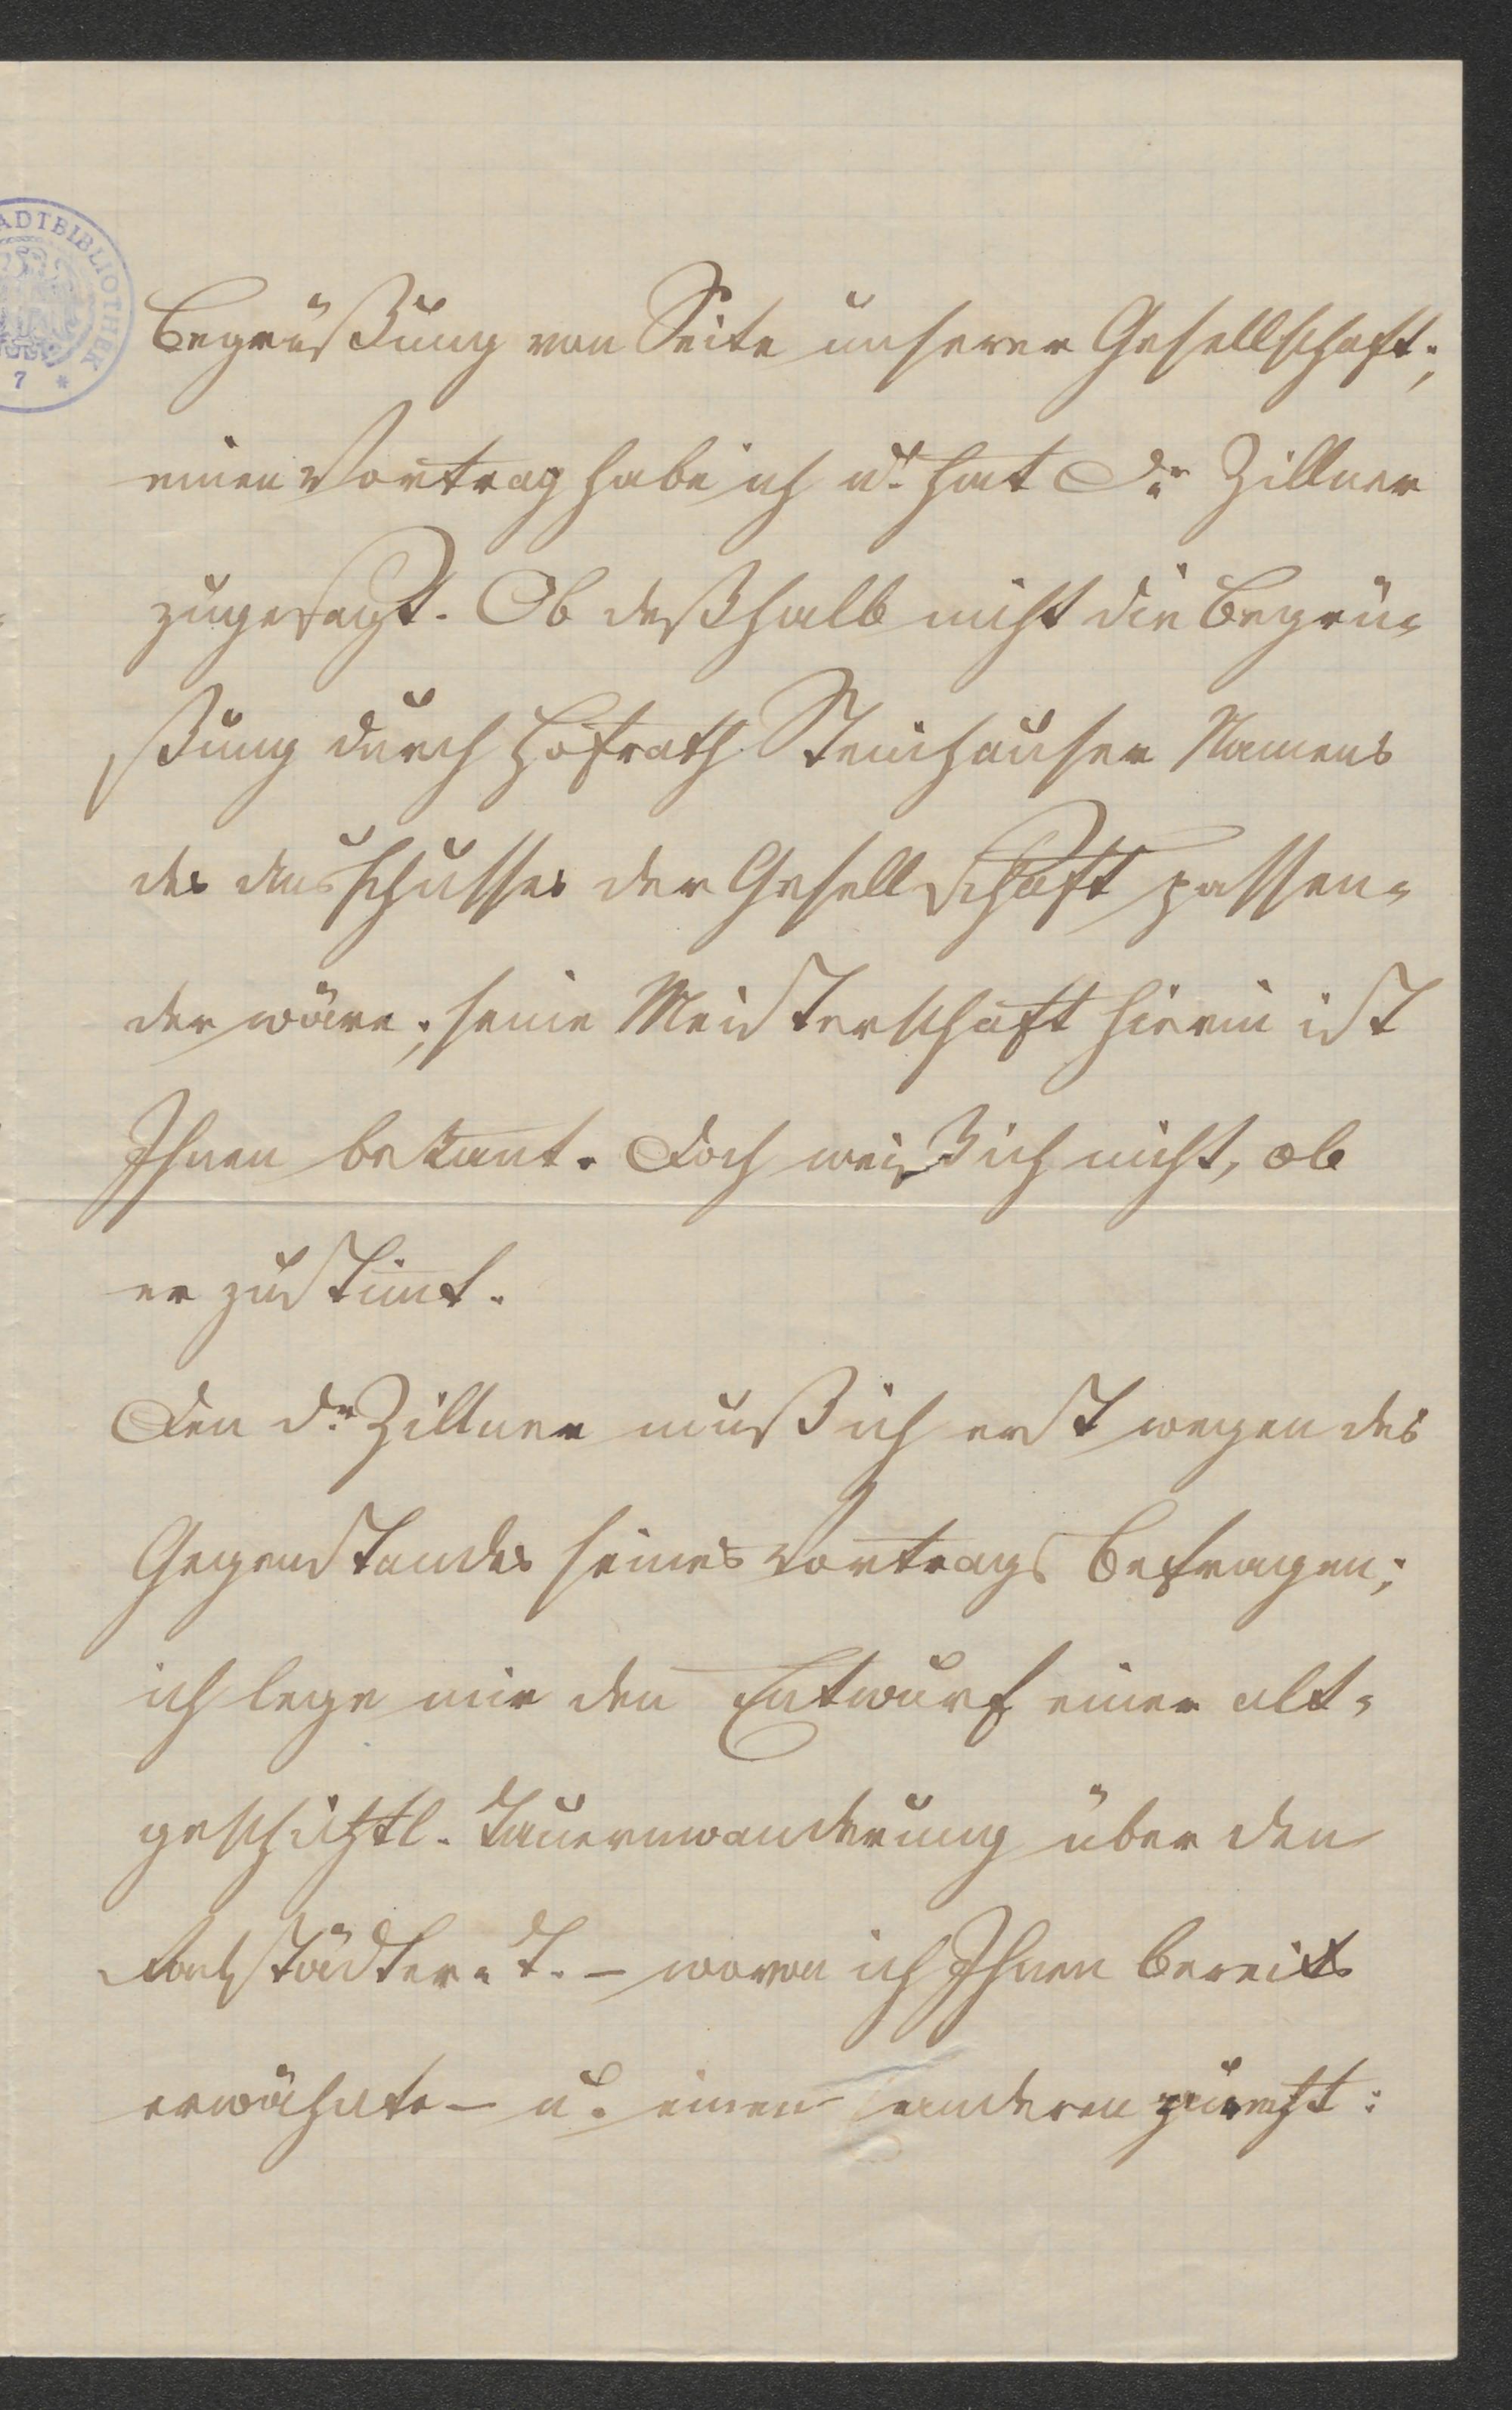 ADTBIBLIOTHEK
7 *
Begrüßung von Seite unserer Gesellschaft;
einen Vortrag habe ich u. hat Dr Zillner
zugesagt. Ob deßhalb nicht die Begrü-
ßung durch Hofrath Steinhauser Namens
des Ausschusses der Gesellschaft passen-
der wäre; seine Meisterschaft hierin ist
Ihnen bekannt. Doch weiß ich nicht, ob
er zustimt.
Den Dr Zillner muß ich erst wegen des
Gegenstandes seines Vortrags befragen;
ich lege mir den Entwurf einer alt-
geschichtl. Tauernwanderung über den
Radstädter-T. – wovon ich Ihnen bereits
erwähnte – u. einen anderen zurecht: